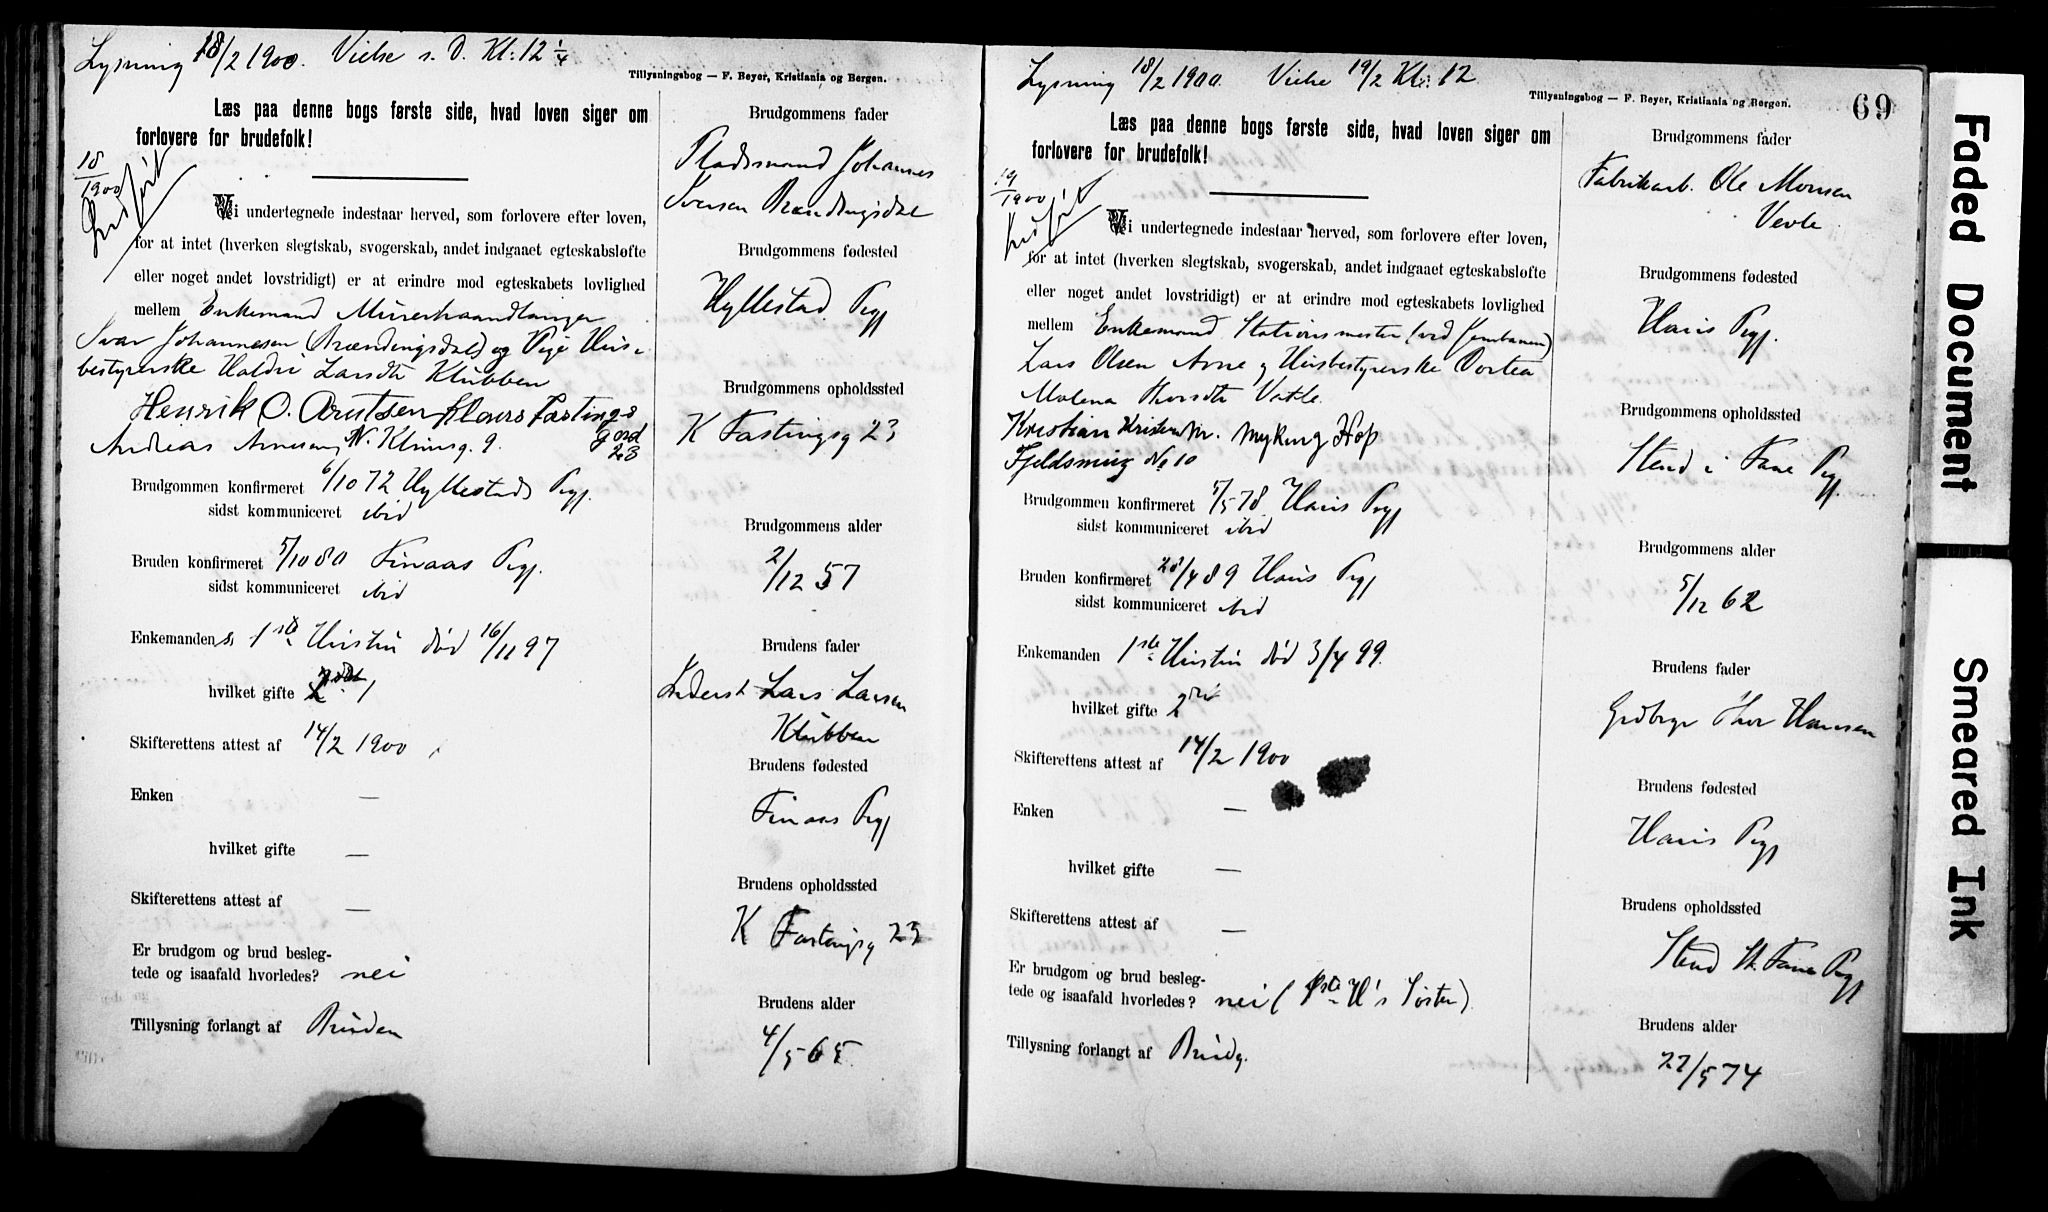 Lysning 18/2 1900. Vielse s. D. Kl: 12 1/4
Tillysningsbog — F. Beyer, Kristiania og Bergen.
Læs paa denne bogs første side, hvad loven siger om
forlovere for brudefolk!
18/1900
Indført
Vi undertegnede indestaar herved, som forlovere efter loven,
for at intet (hverken slegtskab, svogerskab, andet indgaaet egteskabsløfte
eller noget andet lovstridigt) er at erindre mod egteskabets lovlighed
mellem Enkemand Murerhaandlanger
Ivar Johannesen Brændingsdal og Pige Hus-
bestyrerske Larsdtr Klubben
Henrik O. Arntsen Klaus Fastings
gord
23
Andreas N. Klinisg. 9.
Brudgommen konfirmeret 6/10 72 Hyllestads Pgj.
sidst kommuniceret ibid
Bruden konfirmeret 5/10 80 Finaas Pgj.
sidst kommuniceret ibid
Enkemandens 1ste Hustru død 16/11 97
hvilket gifte
Skifterettens attest af 14/2 1900
Enken —
hvilket gifte —
Skifterettens attest af —
Er brudgom og brud besleg-
tede og isaafald hvorledes? nei
Tillysning forlangt af Bruden
Brudgommens fader
Pladsmand Johannes
Iversen Brændingsdal
Brudgommens fødested
Hyllestad Pgj
Brudgommens opholdssted
K Fastingsg 23
Brudgommens alder
2/12 57
Brudens fader
Inderst Lars Larsen
Klubben
Brudens fødested
Finaas Pgj
Brudens opholdssted
K Fastingsg 23
Brudens alder
4/5 65.
Lysning 18/2 1900. Vielse 19/2 Kl: 12
Tillysningsbog — F. Beyer, Kristiania og Bergen.
69
Læs paa denne bogs første side, hvad loven siger om
forlovere for brudefolk!
19/1900
Indført
Vi undertegnede indestaar herved, som forlovere efter loven,
for at intet (hverken slegtskab, svogerskab, andet indgaaet egteskabsløfte
eller noget andet lovstridigt) er at erindre mod egteskabets lovlighed
mellem Enkemand Stationsmester (ved Jernbanen)
Lars Olsen Arne og Husbestyrerske Dortea
Malena Thorsdtr
Kristian Kristensen. Myking Hop
Fjeldsmug No 10
Brudgommen konfirmeret 5/5 78 Haus Pgj
sidst kommuniceret ibid
Bruden konfirmeret 28/4 89 Haus Pgj
sidst kommuniceret ibid
Enkemanden 1ste Hustru død 3/4 99.
hvilket gifte 2det
Skifterettens attest af 14/2 1900
Enken —
hvilket gifte —
Skifterettens attest af —
Er brudgom og brud besleg-
tede og isaafald hvorledes? nei (1ste H's Søster).
Tillysning forlangt af Brudg.
Brudgommens fader
Fabrikarb. Ole Monsen
Vevle
Brudgommens fødested
Haus Pgj.
Brudgommens opholdssted
Stend i Fane Pgj.
Brudgommens alder
5/12 62
Brudens fader
Grdbrgr Thor Hansen
Brudens fødested
Haus Pgj
Brudens opholdssted
Stend St. Fane Pgj
Brudens alder
27/5 74
Faded Document
Smeared Ink